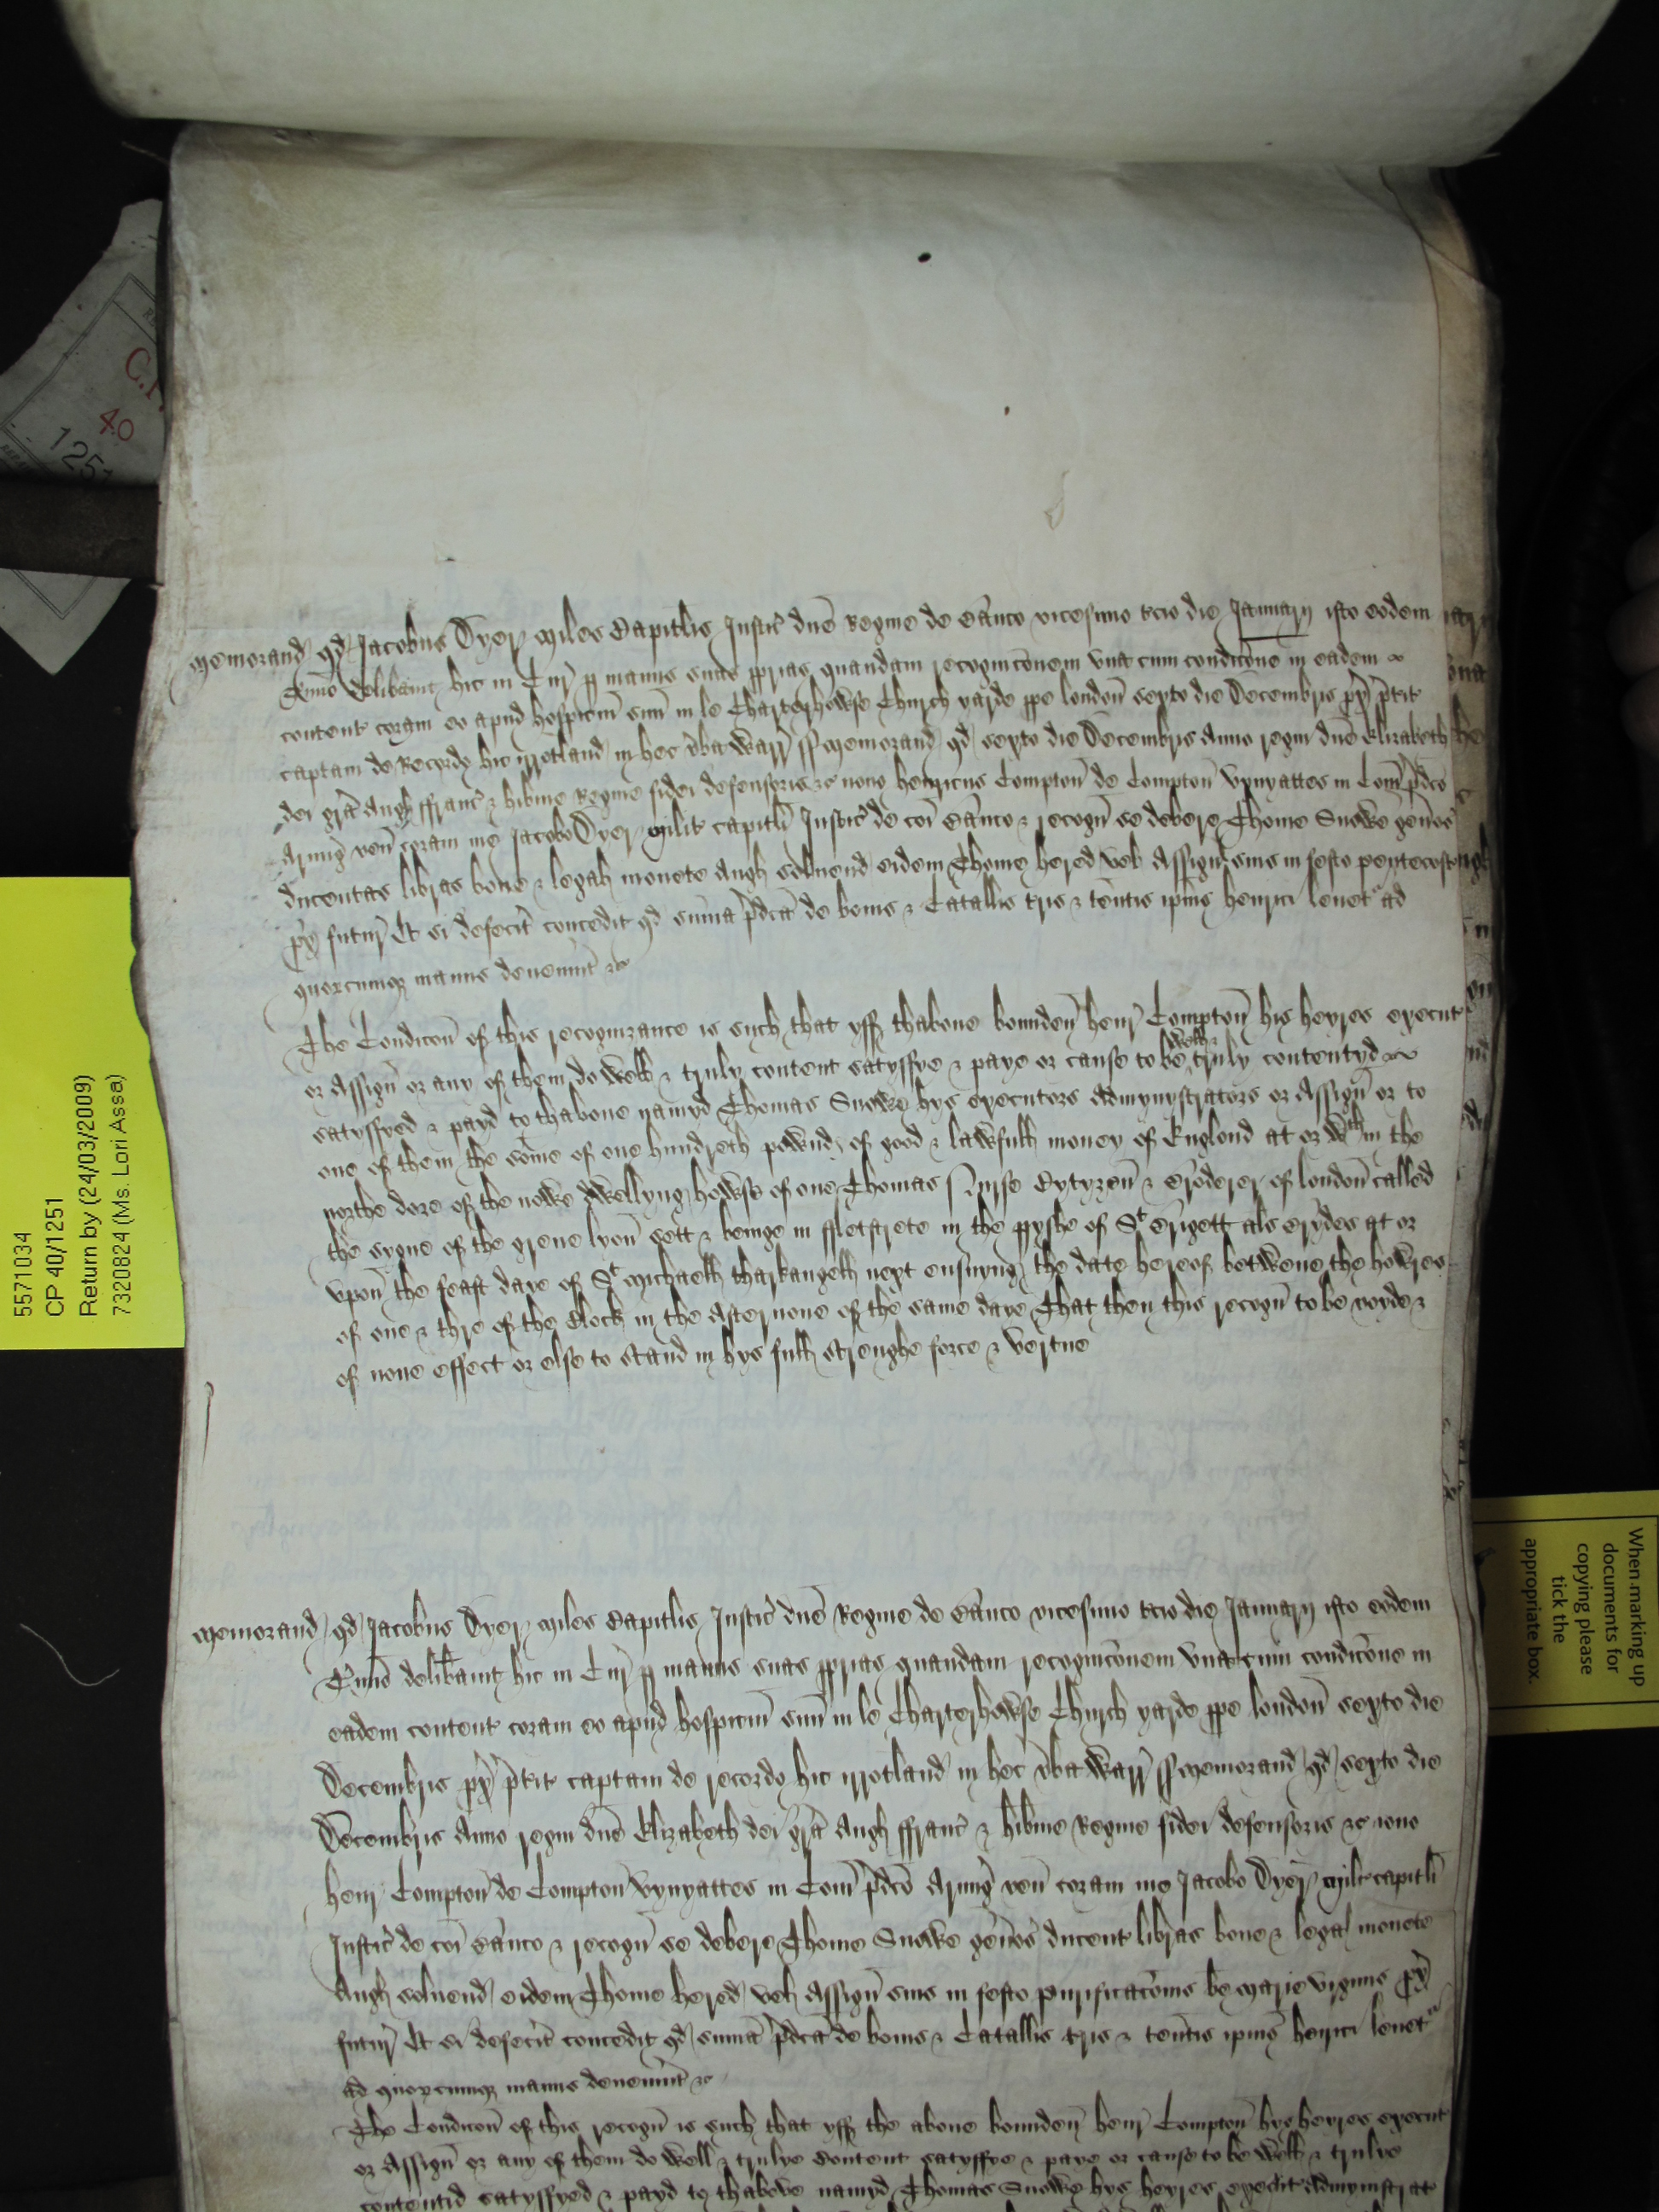 C.P.
40
1251
5571034
CP 40/1251
Return by (24/03/2009)
7320824 (Ms. Lori Assa)
When marking up
documents for
copying please
tick the
appropriate box.
Memorand qd Jacobus Dyer Miles Capitlis Justic dne Regine de Banco vicesimo tcio die Januarij isto eodem
Tmio delibavit hic in Cur p manus suas pprias quandam recognicionem vna cum condicione in eadem
content coram eo apud hospicium suu in le Charterhowse Church yarde ppe london sexto die Decembris px ptit
captam de Recordo hic irrotland in hec vba Warr ss Memorand qd sexto die Decembris Anno regni dne Elizabeth
dei gra Angl ffranc & hibnie Regine fidei defensoris &c nono henricus Compton de Compton Vynyattes in Com pdco
Armig ven coram me Jacobo Dyer Milit capitli Justic de coi Banco & recogn se debere Thome Snowe genos
ducentas libras bone & legal monete Angl solvend eidem Thome hered vel Assign suis in festo pentecost
px futur Et si defecit concedit qd suma pdca de bonis & Catallis tris & tentis ipius henrici levet ad
quorcumq manus devenint &c
The Condicon of this recognizance is such that yff thabove bounden henr Compton his heyres execut
or Assign or any of them do well & truly content satysfye & paye or cause to be well & truly contentyd
satysfyed & payd to thabove namyd Thomas Snowe hys executors Admynystrators or Assign or to
one of them the some of one hundreth pownd of good & lawfull money of Englond at or wthin the
northe dore of the nowe dwellyng howse of one Thomas Nurse Cytyzen & Broderer of london called
the sygne of the grene lyon sett & beinge in ffletstrete in the pyshe of St Brigett als Brydes at or
vpon the feast daye of St Michaell tharkangell next ensuyng the date hereof betwene the howres
of one & thre of the Clock in the Afternone of the same daye That then this recogn to be voyde &
of none effect or else to stand in hys full strenghe force & vertue
Memorand qd Jacobus Dyer Miles Capitlis Justic dne Regine de Banco vicesimo tcio die Januarij isto eodem
Tmio delibavit hic in Cur p manus suas pprias quandam recognicionem vna cum condicione in
eadem content coram eo apud hospicium suu in le Charterhowse Church yarde ppe london sexto die
Decembris px ptit captam de recordo hic irrotland in hec vba Warr ss Memorand qd sexto die
Decembris Anno regni dne Elizabeth dei gra Angl ffranc & hibnie Regine fidei defensoris &c nono
henr Compton de Compton Vynyattes in Com pdco Armig ven coram me Jacobo Dyer Milit capitli
Justic de coi Banco & recogn se debere Thome Snowe genos ducent libras bone & legal monete
Angl solvend eidem Thome hered vel Assign suis in festo purificacionis be Marie virginis px
futur Et si defecit concedit qd suma pdca de bonis & Catallis tris & tentis ipius henrici levet
ad quorcumq manus devenint &c
The Condicon of this recogn is such that yff the above bounden henr Compton hys heyres execut
or Assign or any of them do well & trulye content satysfye & paye or cause to be well & trulye
contentid satysfyed & payd to thabove namyd Thomas Snowe hys heyres execut Admynistrat